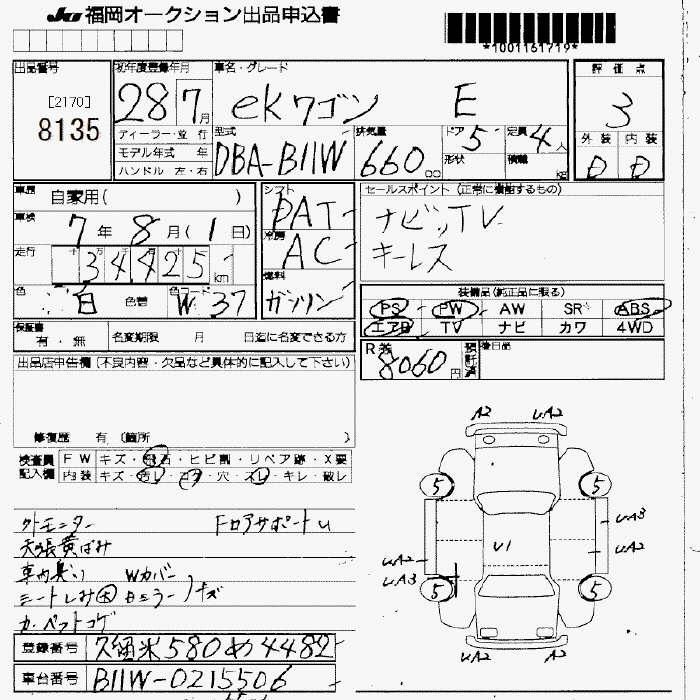 JU 福岡オークション出品申込書
*1001161719*
出品番号 初年度登録年月 車名・グレード 評価点
[2170]
8135
28 7月 ekワゴン E 3
ディーラー・並行 型式 排気量 ドア 定員 外装 内装
モデル年式 年 DBA-B11W 660cc 5 4人 D D
ハンドル 左・右 形状 積載 kg
車歴 自家用( ) シフト DAT セールスポイント(正常に機能するもの)
車検 7年8月(1日) 冷房 AC ナビ,TV
走行 34425km 燃料 ガソリン キーレス
色 白 色替 色コード W37
装備品(純正品に限る)
PS PW AW SR ABS
エアB TV ナビ カワ 4WD
保証書 有・無 名変期限 月 日迄に名変できる方
R券 8060円 預託済 後日品
出品店申告欄(不良内容・欠品など具体的に記入して下さい)
修復歴 有 (箇所 )
検査員 FW キズ・飛石・ヒビ割・リペア跡・X要
記入欄 内装 キズ・汚レ・コゲ・穴・スレ・キレ・破レ
外モニター フロアサポートU
天張黄ばみ
車内臭い Wカバー
シートしみ大 Bミラー キズ
カーペットコゲ
登録番号 久留米580め4482
車台番号 B11W-0215506
A2 UA2
5 5
UA3
U1 UA2
UA2
UA3
5 5
UA2 A2